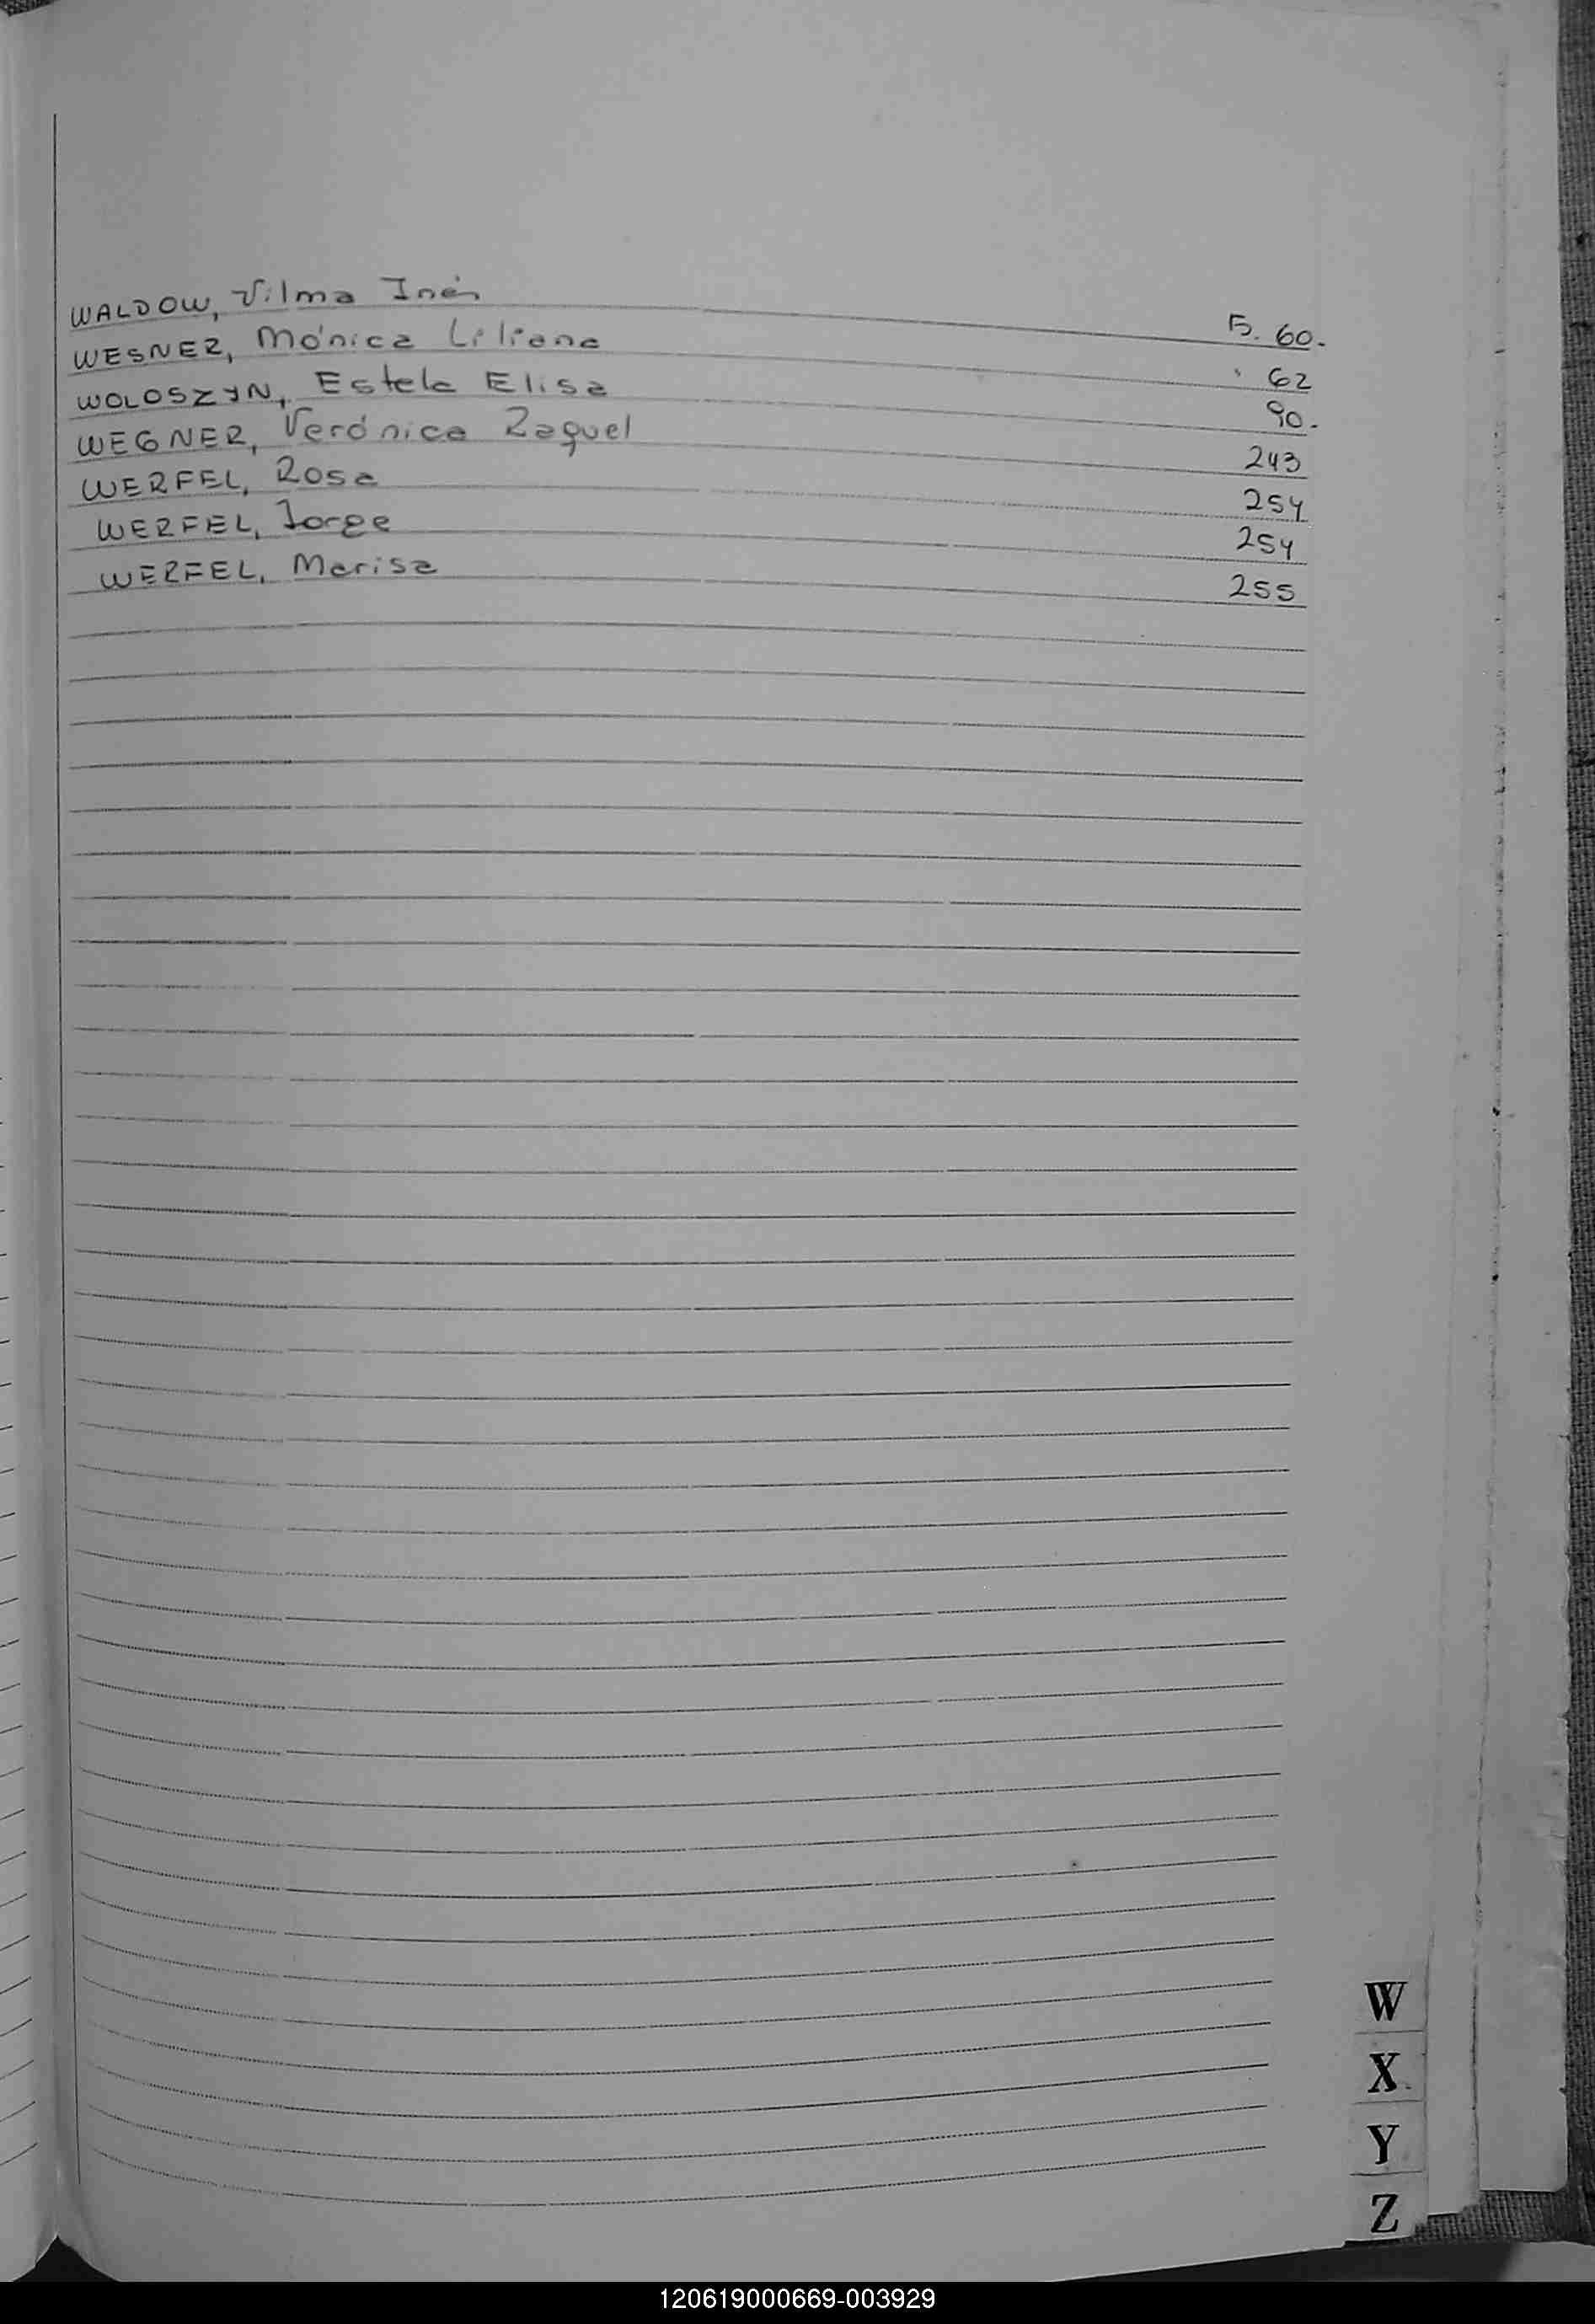 WALDOW, Vilma Inés F. 60.
WESNER, Mónica Liliana " 62
WOLOSZYN, Estela Elisa 90.
WEGNER, Verónica Raquel 243
WERFEL, Rosa 254
WERFEL, Jorge 254
WERFEL, Marisa 255
W
X
Y
Z
120619000669-003929